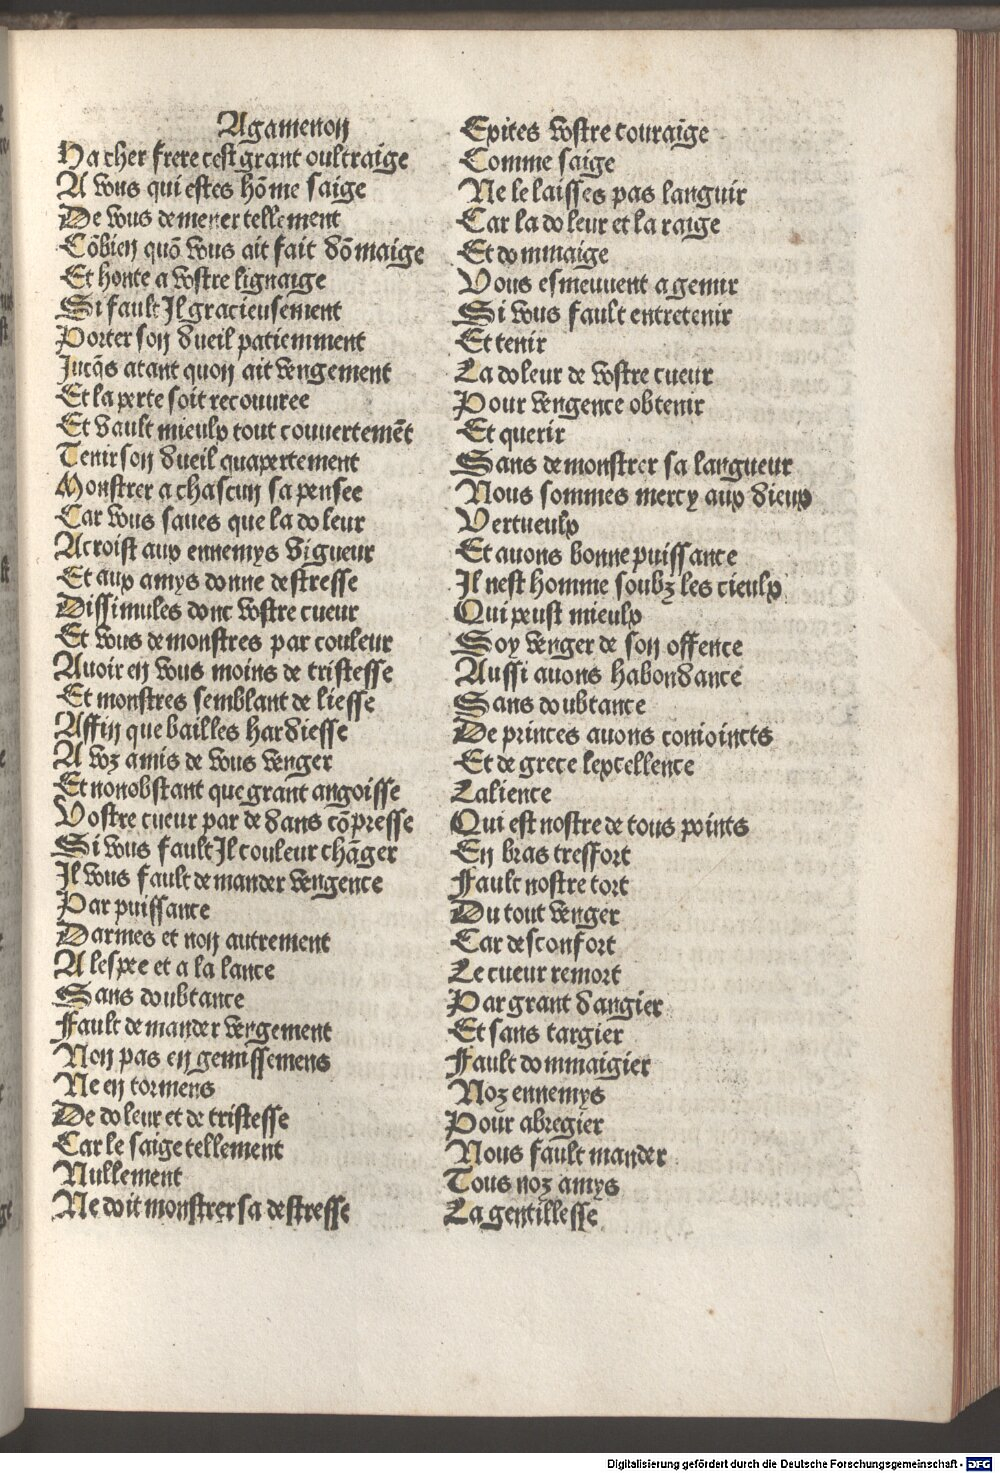 Agamenon
Ha cher frere cest grant oultraige
A vous qui estes hōme saige
De vous demener tellement
Cōbien quō vous ait fait dōmaige
Et honte a vostre lignaige
Si fault Il gracieusement
Porter son dueil patiemment
Jucq̄s atant quon ait vengement
Et la perte soit recouuree
Et vault mieulx tout couuertemēt
Tenir son dueil quapertement
Monstrer a chascun sa pensee
Car vous saues que la doleur
Acroist aux ennemys vigueur
Et aux amys donne destresse
Dissimules donc vostre cueur
Et vous demonstres par couleur
Auoir en vous moins de tristesse
Et monstres semblant de liesse
Affin que bailles hardiesse
A voz amis de vous venger
Et nonobstant que grant angoisse
Vostre cueur par dedans cōpresse
Si vous fault Il couleur chāger
Il vous fault demander vengence
Par puissance
Darmes et non autrement
A lespee et a la lance
Sans doubtance
Fault demander vengement
Non pas en gemissemens
Ne en tormens
De doleur et de tristesse
Car le saige tellement
Nullement
Ne doit monstrer sa destresse
Expites vostre couraige
Comme saige
Ne le laisses pas languir
Car la doleur et la raige
Et dommaige
Vous esmeuuent a gemir
Si vous fault entretenir
Et tenir
La doleur de vostre cueur
Pour vengence obtenir
Et querir
Sans demonstrer sa langueur
Nous sommes mercy aux dieux
Vertueulx
Et auons bonne puissance
Il nest homme soubz les cieulx
Qui peust mieulx
Soy venger de son offence
Aussi auons habondance
Sans doubtance
De princes auons conioincts
Et de grece lexcellence
Lalience
Qui est nostre de tous points
En bras tresfort
Fault nostre tort
Du tout venger
Car desconfort
Le cueur remort
Par grant dangier
Et sans targier
Fault dommaigier
Noz ennemys
Pour abregier
Nous fault mander
Tous noz amys
La gentillesse
Digitalisierung gefördert durch die Deutsche Forschungsgemeinschaft - DFG